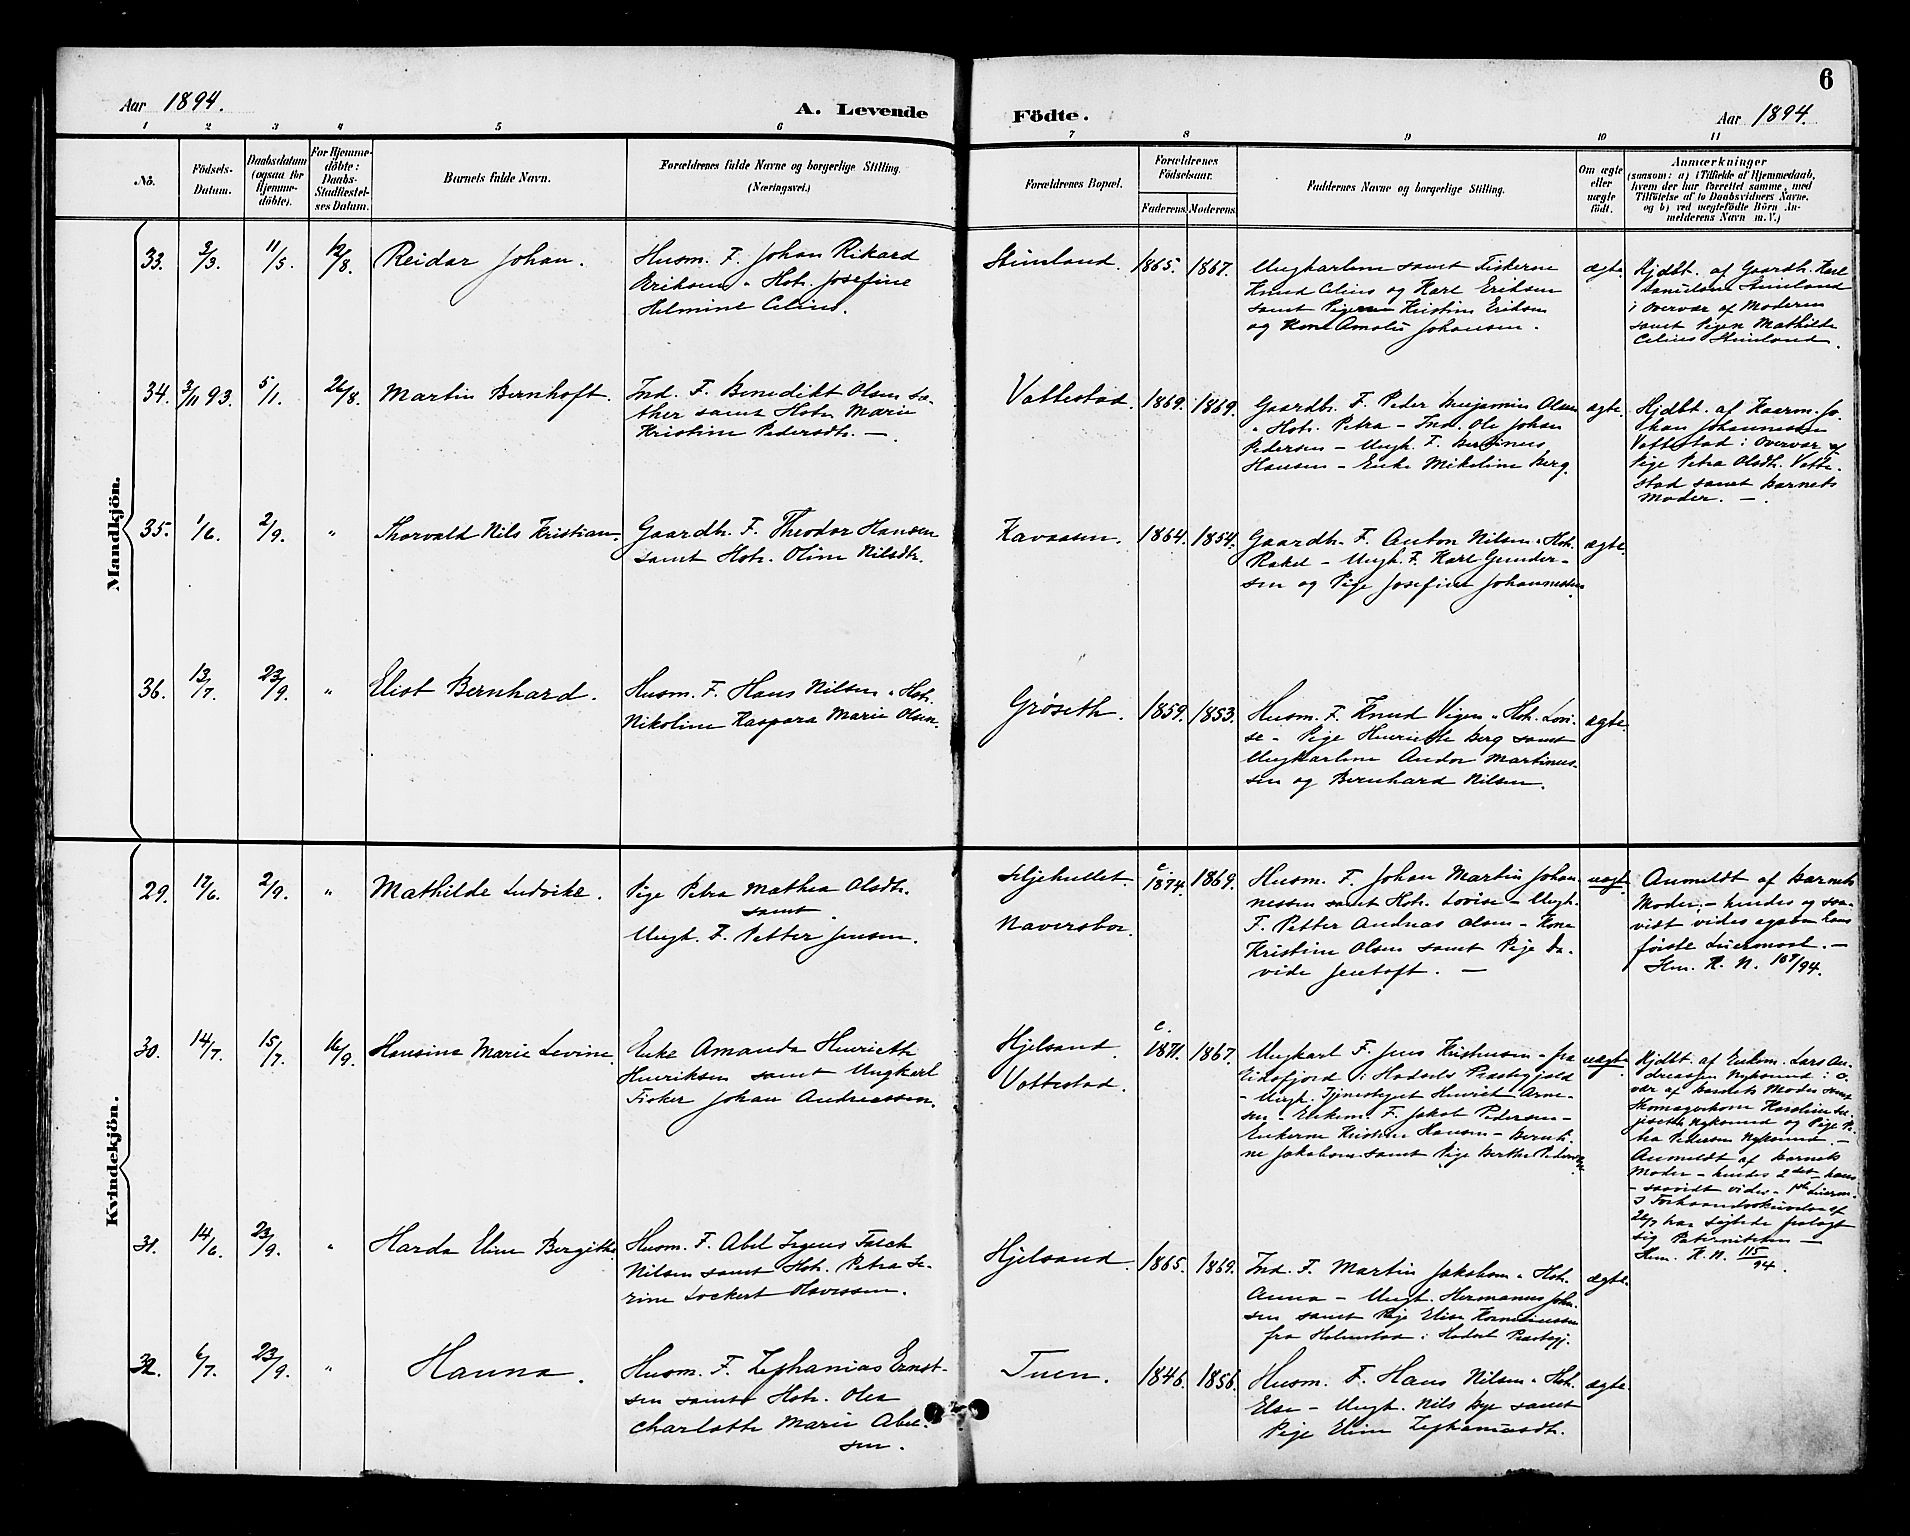 6
Aar 1894.
A. Levende
Födte.
Aar 1894.
1
2
3
4
5
6
7
8
9
10
11
No.
Födsels-
Datum.
Daabsdatum
(ogsaa for
Hjemme-
döbte).
For Hjemme-
döbte:
Daabs-
Stadfæstel-
ses Datum.
Barnets fulde Navn.
Forældrenes fulde Navne og borgerlige Stilling.
(Næringsvei.)
Forældrenes Bopæl.
Forældrenes
Födselsaar.
Faderens.
Moderens.
Faddernes Navne og borgerlige Stilling.
Om ægte
eller
uægte
födt.
Anmærkninger
(saasom: a) i Tilfælde af Hjemmedaab,
hvem der har forrettet samme, med
Tilföielse af to Daabsvidners Navne.
og b) ved uægtefödte Börn An-
melderens Navn m. V.)
Mandkjön.
33.
2/3.
11/5.
12/8.
Reidar Johan.
Husm. F. Johan Rikard
Eriksen " Hstr. Josefine
Helmine Celius.
Stimland.
1865.
1867.
Ungkarlene samt Fiskerne
Knud Celius og Karl Eriksen
samt Pigerne Kristine Eriksen
og Kone Amalie Johansen.
ægte.
Hjdbt. af Gaardb. Karl
Stimland
i Overvær af Moderen
samt Pigen Mathilde
Celius Stimland.
34.
3/11 93.
5/1.
26/8.
Martin Bernhoft.
Ind. F. Benedikt Olsen Sæ-
ther samt Hstr. Marie
Kristine Pedersdtr. —
Vottestad.
1869.
1869.
Gaardbr. F. Peder Benjamin Olsen
" Hstr. Petra – Ind. Ole Johan
Pedersen – Ungk. F. Bertinus
Hansen – Enke Mikeline Berg.
ægte.
Hjdbt. af Kaarm. Jo-
han Johannessen
Vottestad i Overvær af
Pige Petra Olsdtr. Votte-
stad samt Barnets
Moder. —
35.
1/6.
2/9.
"
Thorvald Nils Kristian.
Gaardbr. F. Theodor Hansen
samt Hstr. Oline Nilsdtr.
Kavaasen.
1864.
1854.
Gaardbr. F. Anton Nilsen " Hstr.
Rakel – Ungk. F. Karl Gunder-
sen og Pige Josefine Johannessen
ægte.
36.
13/7.
23/9.
"
Eliot Bernhard.
Husm. F. Hans Nilsen " Hstr.
Nikoline Kaspara Marie Olsen.
Grøseth.
1859.
1853.
Husm. F. Knud Vigen " Hstr. Lovi-
se – Pige Henriette Berg samt
Ungkarlene Andor Martinus-
sen og Bernhard Nilsen.
ægte.
Kvindekjön.
29.
17/6.
2/9.
"
Mathilde Ludvike.
Pige Petra Mathea Olsdtr.
samt
Ungk. F. Petter Jensen.
Naversbor.
c. 1874.
1869.
Husm. F. Johan Martin Johan-
nessen samt Hstr. Lovise – Ungk.
F. Petter Andreas Olsen – Kone
Kristine Olsen samt Pige Da-
vide Jentoft. —
uægte.
Anmeldt af Barnets
Moder – hendes og saa-
vidt vides ogsaa hans
første Leiermaal. —
Km. R. N. 107/94.
30.
14/7.
15/7.
16/9.
Hansine Marie Levine.
Enke Amanda Henriette
Henriksen samt Ungkarl
Fisker Johan Andreassen.
Hjelsand.
Vottestad.
c. 1871.
1867.
Ungkarl F. Jens Kristensen – fra
Eidsfjord i Hadsels Præstegjæld
– Ungk. Tjenestegut Henrik Arne-
sen – Enkem. F. Jakob Pedersen –
Enkerne Kristine Hansen – Bernti-
ne Jakobsen samt Pige Berthe Pedersen
uægte.
Hjdbt. af Enkem. Lars An-
dreassen Nyksund i O-
vær af Barnets Moder samt
Skomagerkone Karoline
Nyksund og Pige Pe-
tra Pedersen Nyksund. —
Anmeldt af Barnets
Moder – hendes 2det – hans
– saavidt vides – 1ste Leierm.
Km. R. N. 115/94.
31.
14/6.
23/9.
"
Harda Eline Bergithe
Husm. F. Abel Jrgens Falch
Nilsen samt Hstr. Petra Se-
rine Lockert Olavessen.
Hjelsand.
1865.
1869.
Ind. F. Martin Jakobsen " Hstr.
Anna – Ungk. Hermanus Johan-
sen samt Pige Elise Korneliussen
fra Holmstad i Hadsel Præstegj.
ægte.
32.
6/7.
23/9.
"
Hanna.
Husm. F. Zephanias Ernst-
sen samt Hstr. Olea
Charlotte Marie Abel-
sen.
Tuen.
1846.
1856.
Husm. F. Hans Nilsen " Hstr.
Else – Ungk. Nils Bye samt
Pige Eline Zephaniasdtr.
ægte.